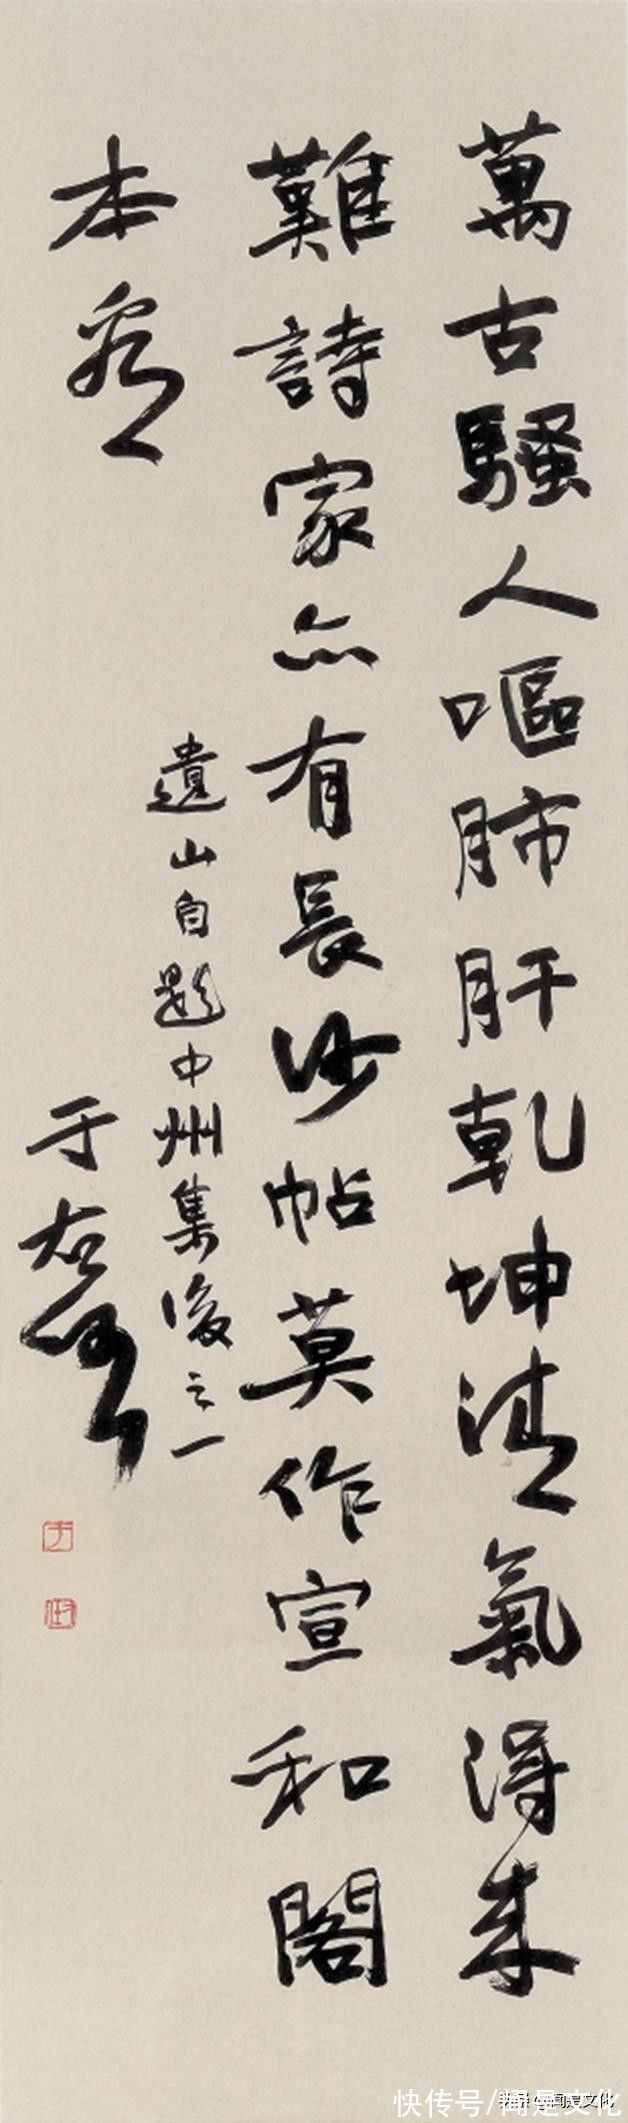 萬古騷人嘔肺肝乾坤清氣得來
難詩家亦有長沙帖莫作宣和閣
本看
遺山自題中州集後之一
于右任
快传号/闻是文化